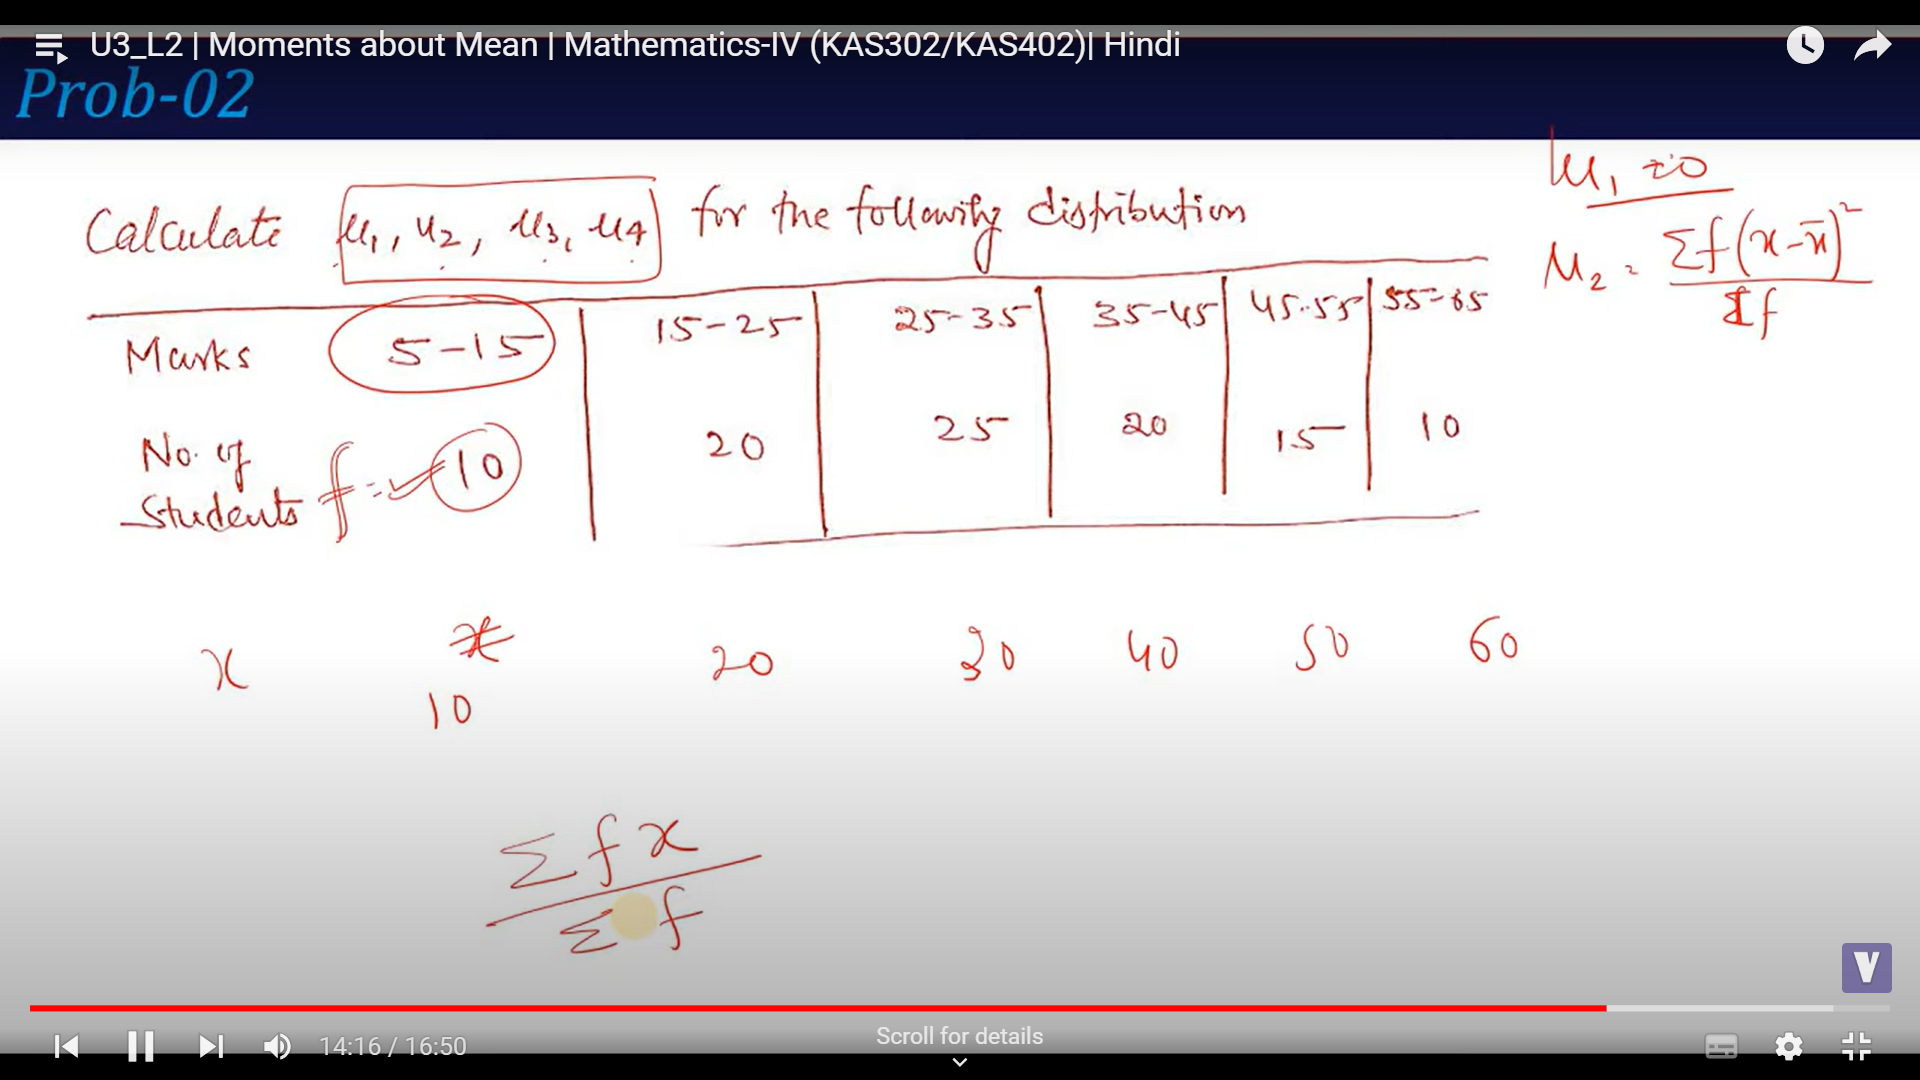 U3_L2 | Moments about Mean | Mathematics-IV (KAS302/KAS402)| Hindi
Prob-02
Calculate μ1, μ2, μ3, μ4 for the following distribution
μ1 = 0
μ2 = Σf(x-x̄)²
Σf
Marks 5-15 15-25 25-35 35-45 45-55 55-65
No. of
Students f = 10 20 25 20 15 10
x x 20 30 40 50 60
10
Σ f x
Σ f
V
14:16 / 16:50
Scroll for details